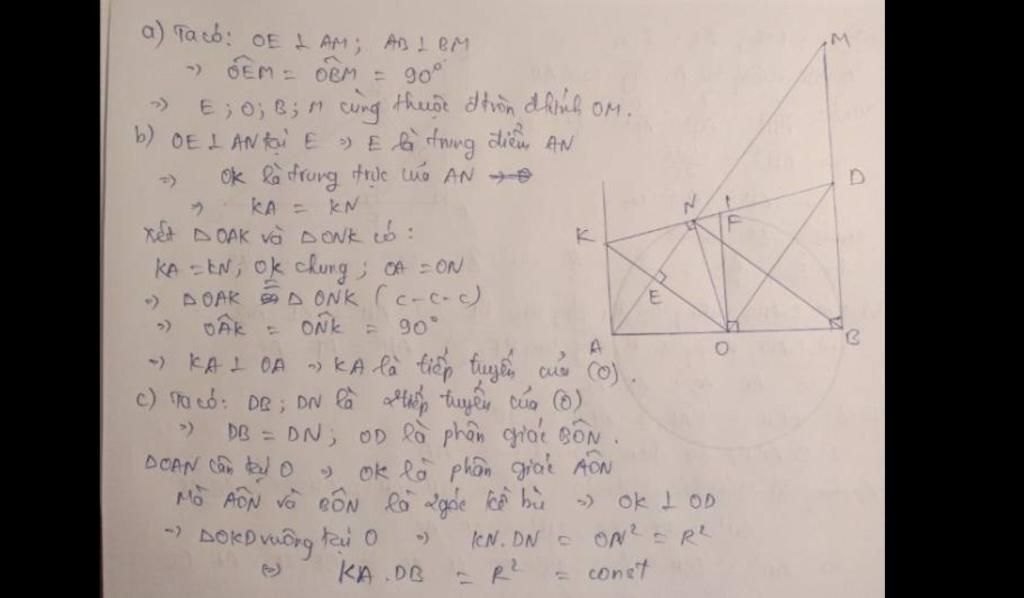 a) Ta có: OE ⊥ AM; AB ⊥ BM
→ OÊM = OB̂M = 90°
→ E; O; B; M cùng thuộc đtròn đkính OM.
b) OE ⊥ AN tại E → E là trung điểm AN
→ OK là trung trực của AN
→ KA = KN
Xét △OAK và △ONK có:
KA = KN; OK chung; OA = ON
→ △OAK = △ONK (c-c-c)
→ OÂK = ON̂K = 90°
→ KA ⊥ OA → KA là tiếp tuyến của (O).
c) Ta có: DB; DN là 2 tiếp tuyến của (O)
→ DB = DN; OD là phân giác BÔN.
△OAN cân tại O → OK là phân giác AÔN
Mà AÔN và BÔN là 2 góc kề bù → OK ⊥ OD
→ △OKD vuông tại O → KN.DN = ON² = R²
⇔ KA.DB = R² = const
M
D
N
F
K
E
A
O
B